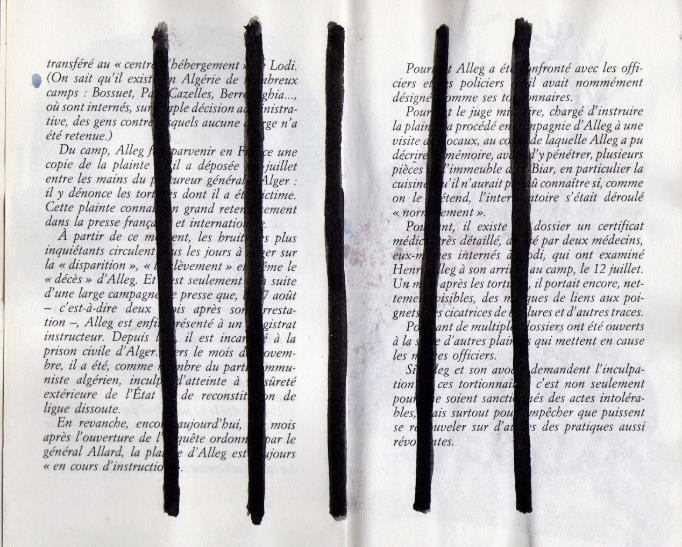 transféré au « centre d'hébergement » de Lodi.
(On sait qu'il existe en Algérie de nombreux
camps : Bossuet, Paul Cazelles, Berrouaghia...,
où sont internés, sur simple décision administra-
tive, des gens contre lesquels aucune charge n'a
été retenue.)
Du camp, Alleg fit parvenir en France une
copie de la plainte qu'il a déposée juillet
entre les mains du procureur général d'Alger :
il y dénonce les tortures dont il a été victime.
Cette plainte connaît un grand retentissement
dans la presse française et internationale.
À partir de ce moment, les bruits les plus
inquiétants circulent tous les jours à Alger sur
la « disparition », « l'enlèvement » et même le
« décès » d'Alleg. Et c'est seulement à la suite
d'une large campagne de presse que, le 17 août
– c'est-à-dire deux mois après son arresta-
tion –, Alleg est enfin présenté à un magistrat
instructeur. Depuis lors, il est incarcéré à la
prison civile d'Alger. Vers le mois de novem-
bre, il a été, comme membre du parti commu-
niste algérien, inculpé d'atteinte à la sûreté
extérieure de l'État et de reconstitution de
ligue dissoute.
En revanche, encore aujourd'hui, mois
après l'ouverture de l'enquête ordonnée par le
général Allard, la plainte d'Alleg est toujours
« en cours d'instruction ».
Pourtant Alleg a été confronté avec les offi-
ciers et les policiers qu'il avait nommément
désignés comme ses tortionnaires.
Pourtant le juge militaire, chargé d'instruire
la plainte, a procédé en compagnie d'Alleg à une
visite des locaux, au cours de laquelle Alleg a pu
décrire de mémoire, avant d'y pénétrer, plusieurs
pièces de l'immeuble d'El-Biar, en particulier la
cuisine qu'il n'aurait pas dû connaître si, comme
on le prétend, l'interrogatoire s'était déroulé
« normalement ».
Pourtant, il existe au dossier un certificat
médical très détaillé, délivré par deux médecins,
eux-mêmes internés à Lodi, qui ont examiné
Henri Alleg à son arrivée au camp, le 12 juillet.
Un mois après les tortures, il portait encore, net-
tement visibles, des marques de liens aux poi-
gnets, des cicatrices de brûlures et d'autres traces.
Pourtant de multiples dossiers ont été ouverts
à la suite d'autres plaintes qui mettent en cause
les mêmes officiers.
Si Alleg et son avocat demandent l'inculpa-
tion de ces tortionnaires, c'est non seulement
pour que soient sanctionnés des actes intoléra-
bles, mais surtout pour empêcher que puissent
se renouveler sur d'autres des pratiques aussi
révoltantes.